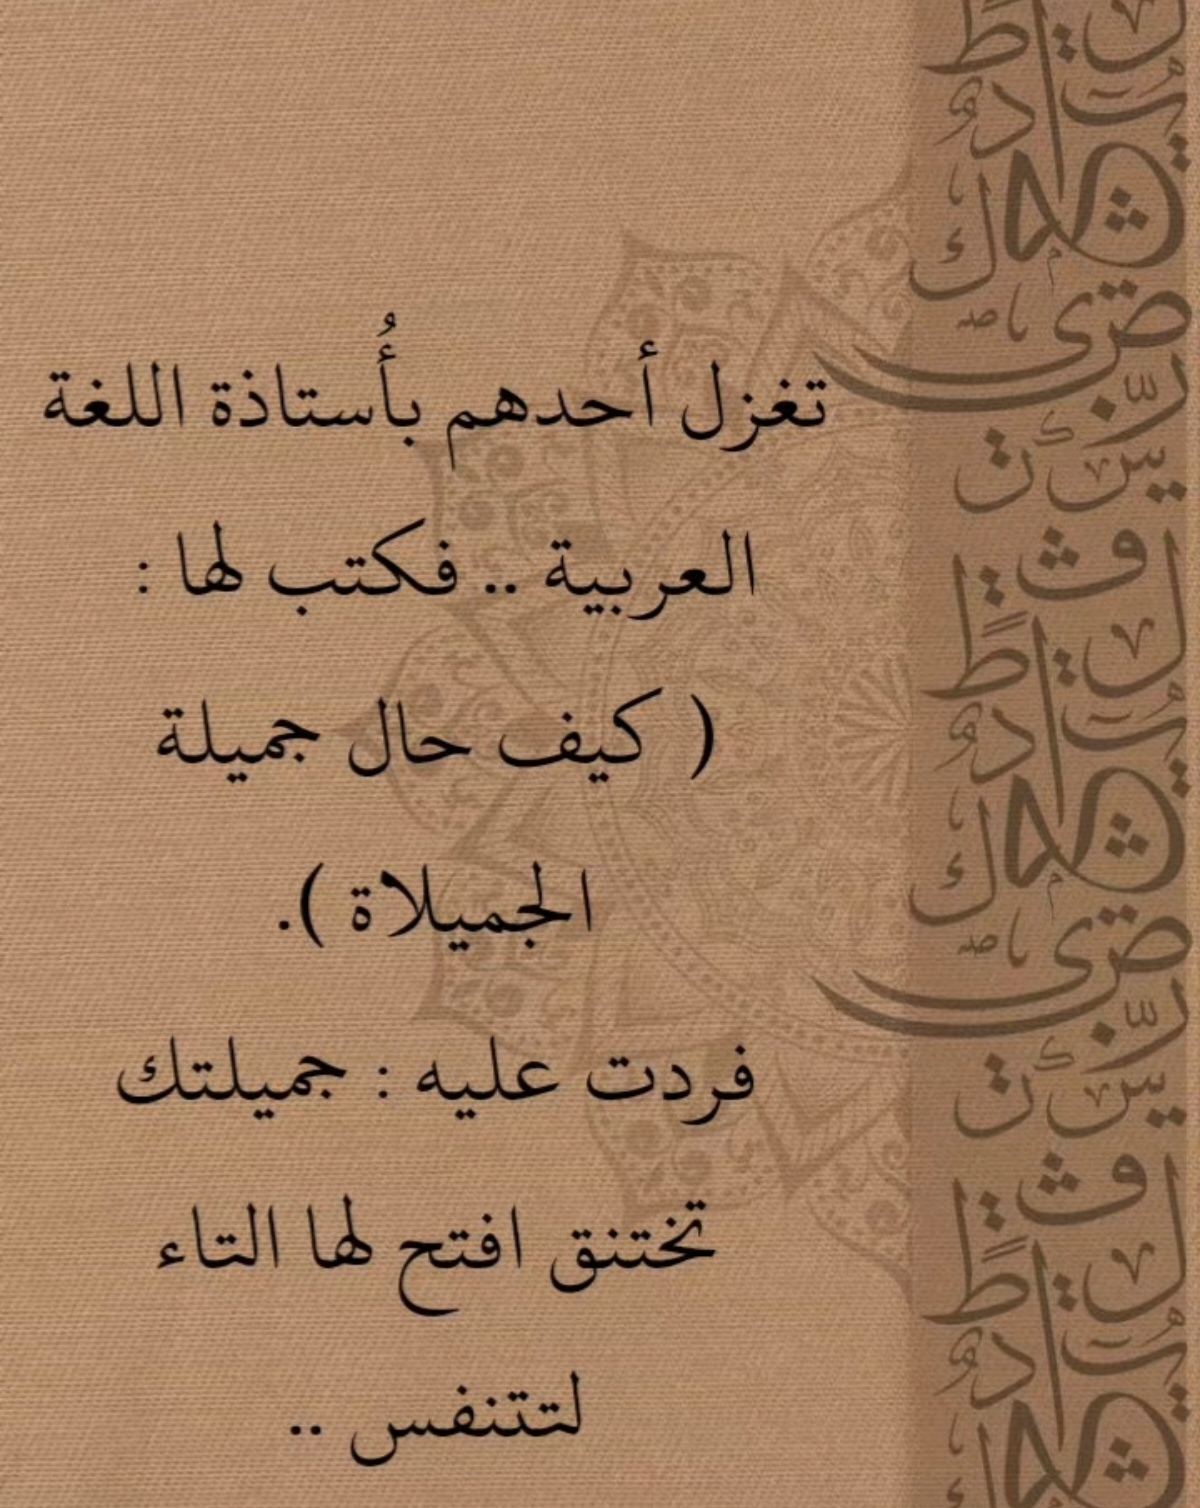 تغزل أحدهم بأُستاذة اللغة
العربية .. فكتب لها :
( كيف حال جميلة
الجميلاة ).
فردت عليه : جميلتك
تختنق افتح لها التاء
لتتنفس ..